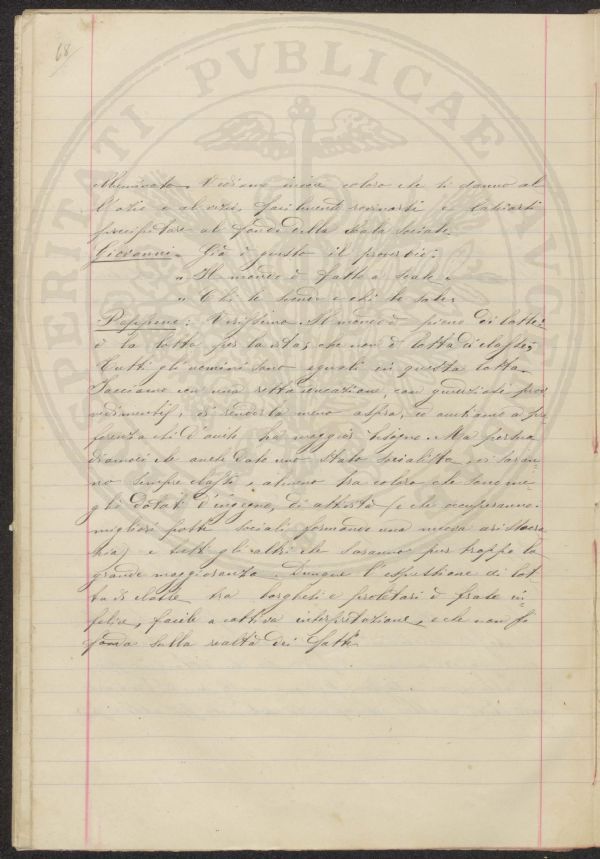 68
PROSPERITATI PVBLICAE AVGENDAE
Vediamo invece coloro che si danno al
l'ozio e al vizio, facilmente rovinarsi e lasciarsi
precipitare al fondo della scala sociale.
Giovanni. Già è giusto il proverbio:
" Il mondo è fatto a scale "
" Chi le scende e chi le sale.
Peppino: Verissimo. Il mondo è pieno di lotte:
è la lotta per la vita, che non è lotta di classe;
Tutti gli uomini sono eguali in questa lotta.
Facciamo con una retta educazione, con giudiziosi prov
vedimenti, di renderla meno aspra, ed aiutiamo a pre
ferenza chi d'aiuto ha maggior bisogno. Ma persua
diamoci che anche dato uno Stato socialista, vi saran=
no sempre classi, almeno tra coloro che sono me=
gli dotati d'ingegno, di attività (e che occuperanno i
migliori posti sociali formando una nuova aristocra
zia) e tutti gli altri che saranno pur troppo la
grande maggioranza. Dunque l'espressione di lot
ta di classe tra borghesi e proletari è frase in=
felice, facile a cattiva interpretazione, e che non si
fonda sulla realtà dei fatti.